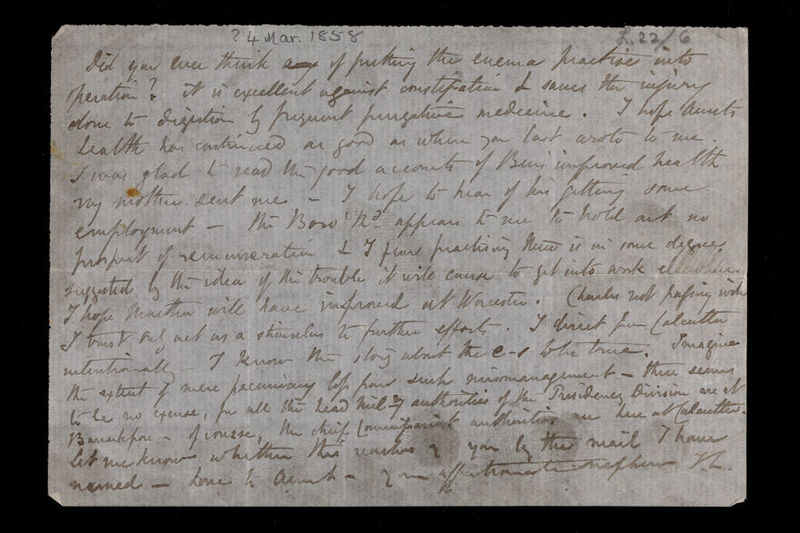 ? 4 Mar. 1858
L. 22/6
Did you ever think of putting the enema practice into
operation? it is excellent against constipation & saves the injury
done to digestion by frequent purgative medicine. I hope Aunt's
health has continued as good as when you last wrote to me.
I was glad to read the good accounts of Ben's improved health
my mother sent me – I hope to hear of his getting some
employment – the Boro' appears to me to hold out no
prospect of remuneration & I fear practising there is in some degree
suggested by the idea of the trouble it will cause to get into work elsewhere.
I hope Martha will have improved at Worcester. Charles not passing
I trust only act as a stimulus to further efforts. I direct from Calcutta
intentionally – I know the story about the c–s to be true. Imagine
the extent of mere pecuniary loss from such mismanagement – there seems
to be no excuse, for all the head authorities of the Presidency Division are at
Barrackpore – of course, the chief Commissariat authorities are here at Calcutta.
let me know whether this reaches you by the mail I have
named – love to Aunt – yr affectionate nephew